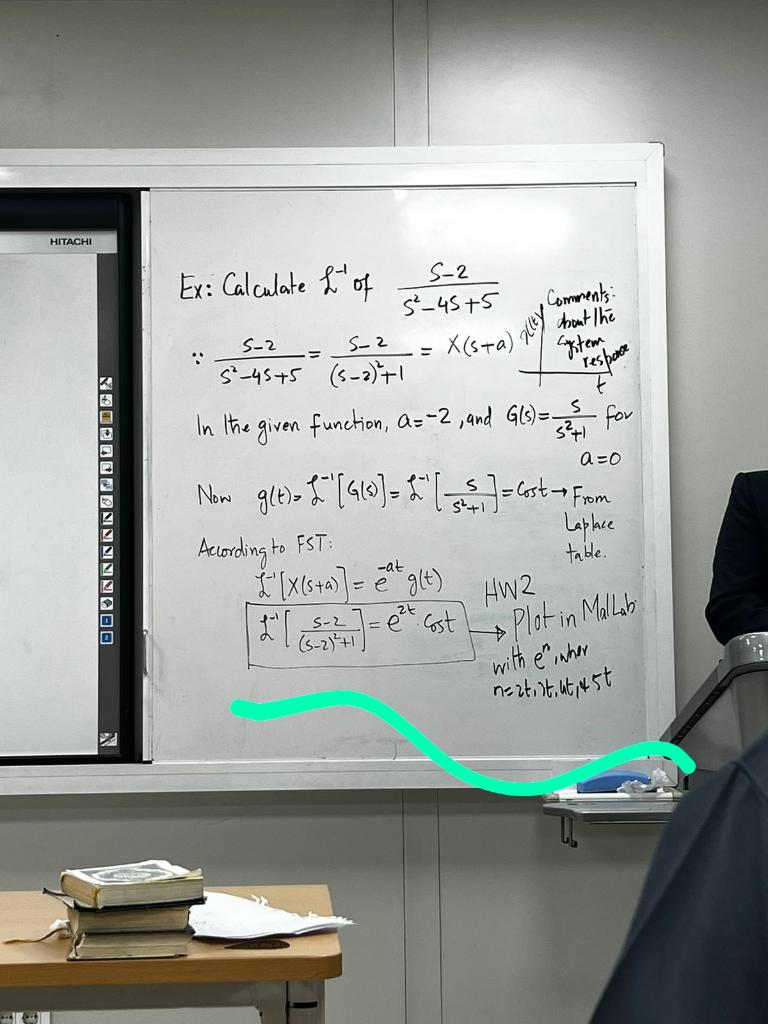 HITACHI
Ex: Calculate ℒ⁻¹ of (S-2)/(S²-4S+5)
∵ (S-2)/(S²-4S+5) = (S-2)/((S-2)²+1) = X(s+a)
x(t)
t
Comments:
about the
system
response
In the given function, a=-2, and G(s)= S/(S²+1) for
a=0
Now g(t)= ℒ⁻¹[G(s)] = ℒ⁻¹[S/(S²+1)] = Cost → From
Laplace
table.
According to FST:
ℒ⁻¹[X(s+a)] = e^(-at) g(t)
ℒ⁻¹[(S-2)/((S-2)²+1)] = e^(2t) · Cost →
HW2
Plot in MatLab
with eⁿ, when
n=2t, 3t, 4t, & 5t